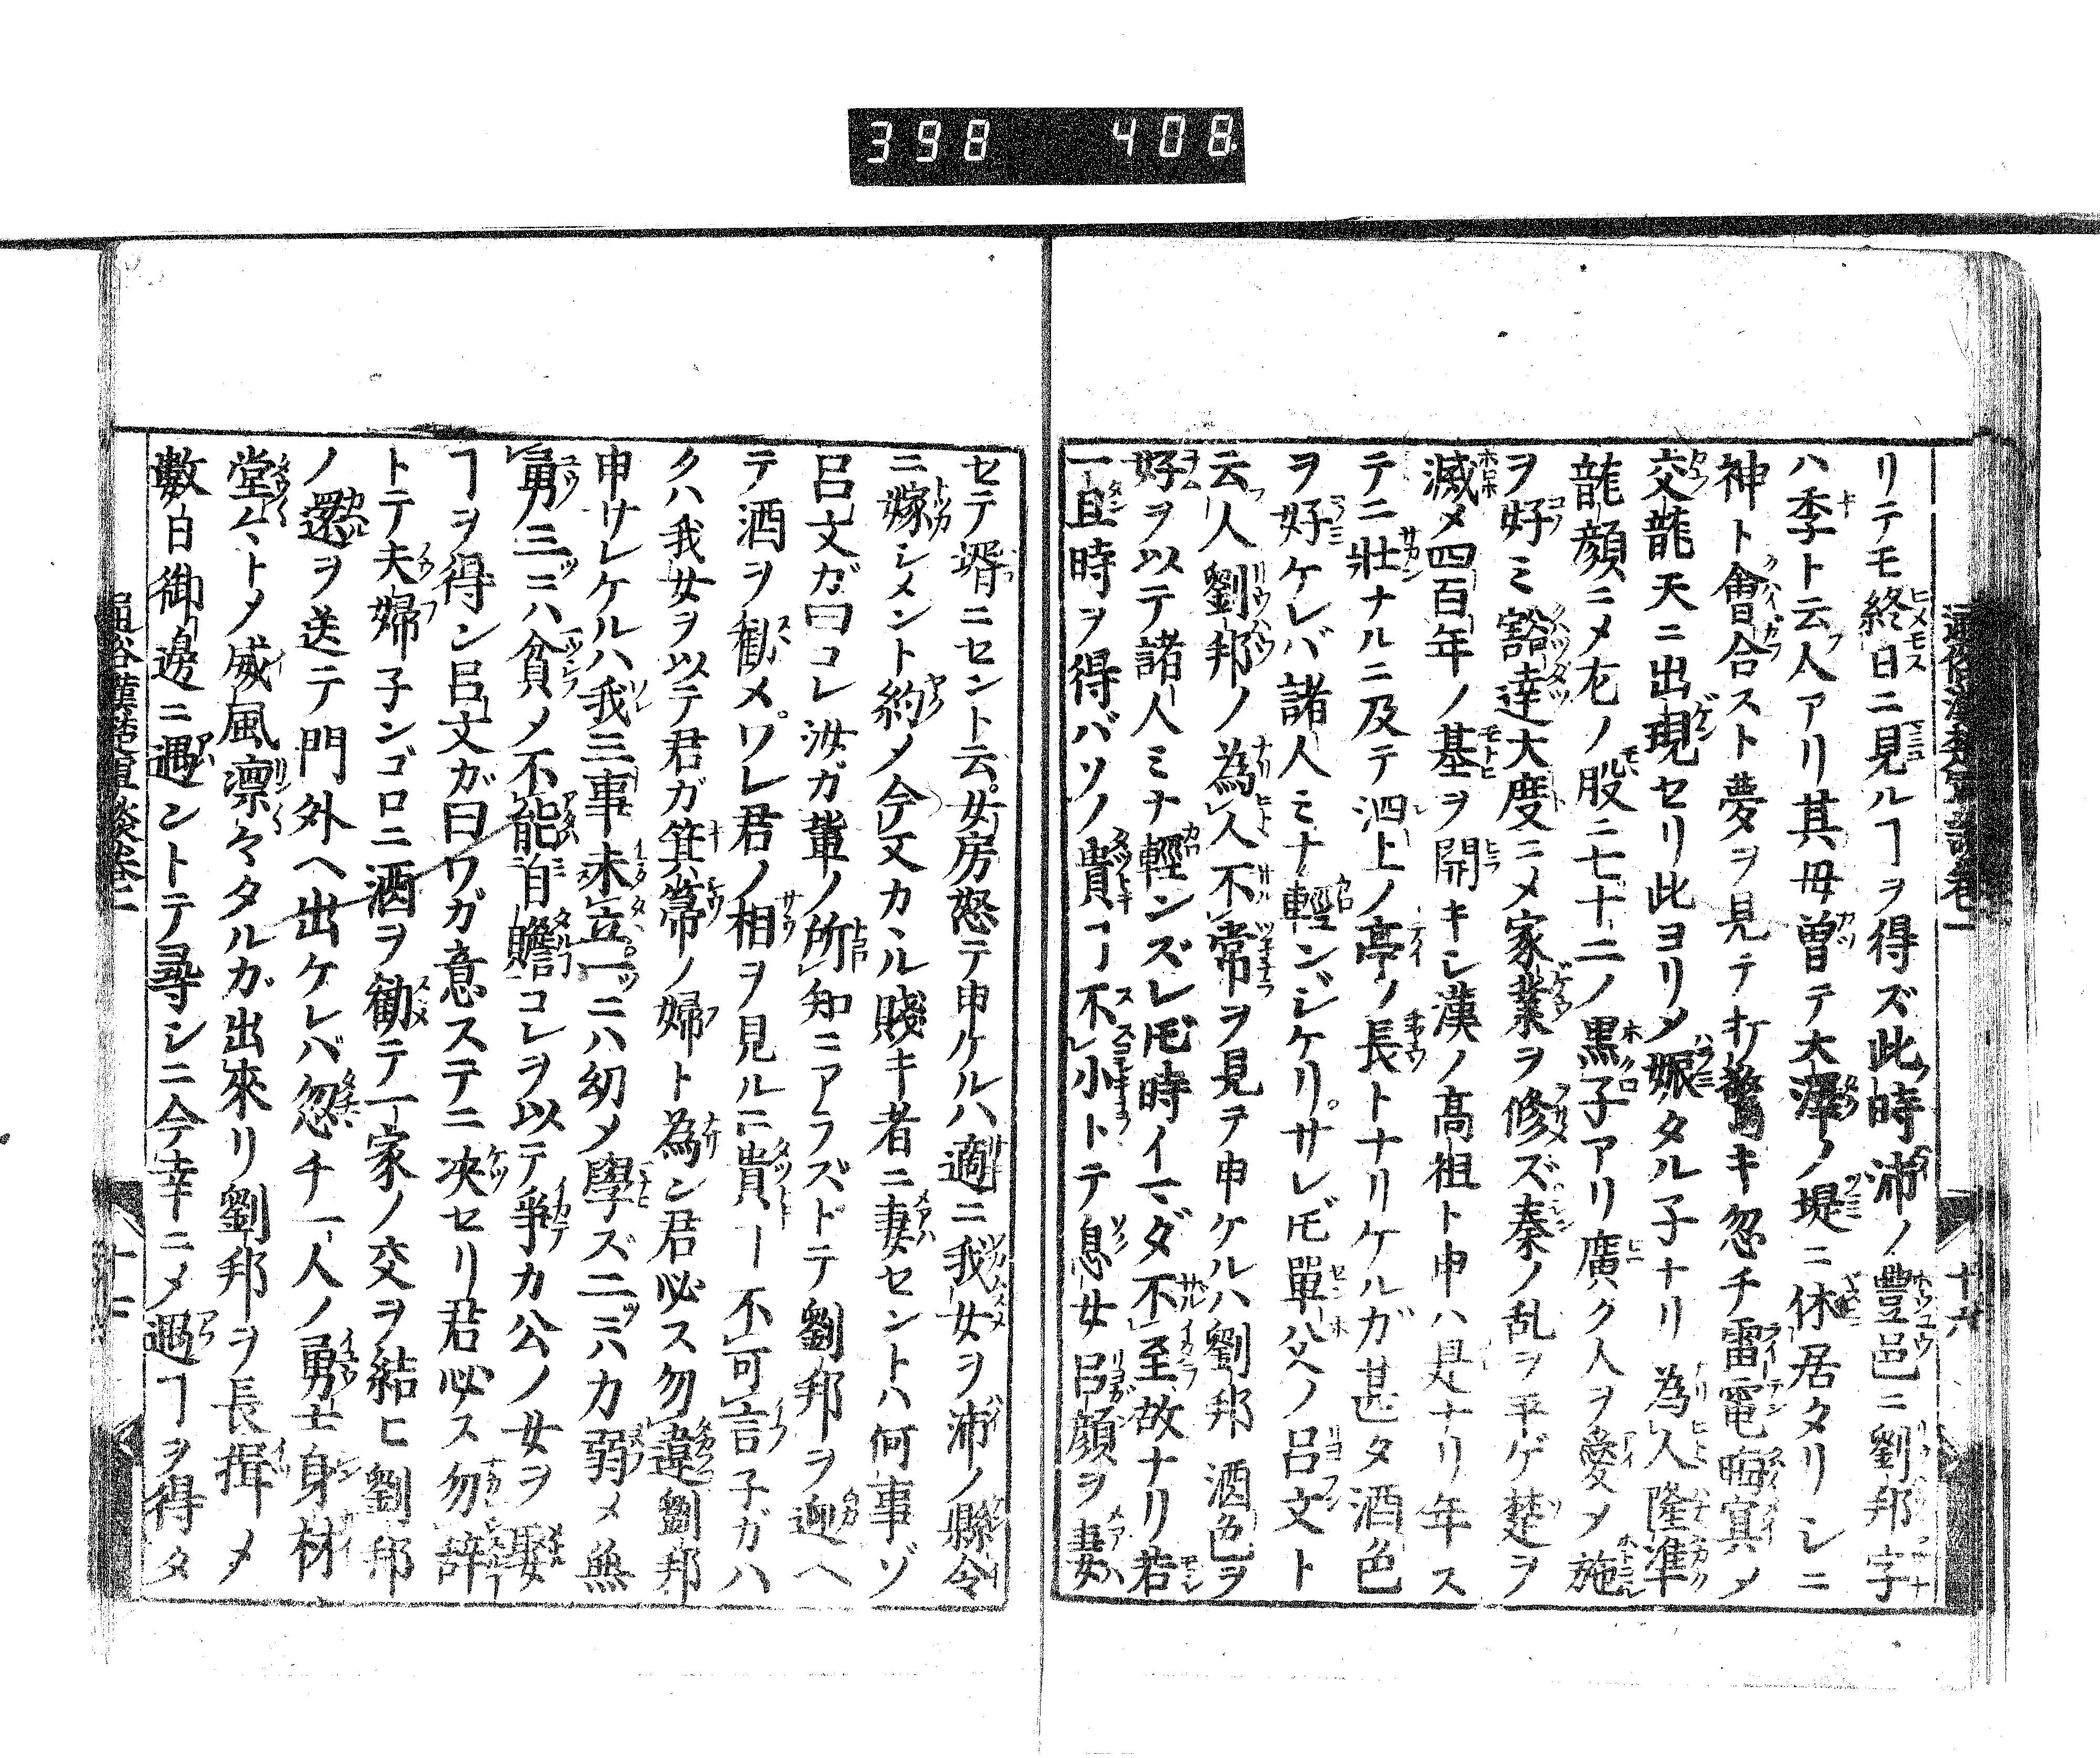 398 408
リテモ終日ニ見ルヿヲ得ズ此時沛ノ豐邑ニ劉邦字
ハ季ト云人アリ其母曽テ大澤ノ堤ニ休居タリシニ
神ト會合スト夢ヲ見テ打驚キ忽チ雷電晦冥メ
交龍天ニ出現セリ此ヨリメ娠タル子ナリ為人隆準
龍顔ニメ左ノ股ニ七十二ノ黒子アリ廣ク人ヲ愛メ施
ヲ好ミ豁達大度ニメ家業ヲ修ズ秦ノ乱ヲ平ゲ楚ヲ
滅メ四百年ノ基ヲ開キシ漢ノ髙祖ト申ハ是ナリ年ス
テニ壮ナルニ及テ泗上ノ亭ノ長トナリケルガ甚タ酒色
ヲ好ケレバ諸人ミナ輕ンジケリサレ𪜈單父ノ呂文ト
云人劉邦ノ為人不常ヲ見ヲ申ケルハ劉邦酒色ヲ
好ヲ以テ諸人ミナ輕ンズレ𪜈時イマダ不至故ナリ若
一旦時ヲ得バソノ貴ヿ不小トテ息女呂顔ヲ妻
セテ壻ニセント云女房怒テ申ケルハ適ニ我女ヲ沛ノ縣令
ニ嫁シメント約メ今又カヽル賤キ者ニ妻セントハ何事ゾ
呂文ガ曰コレ汝ガ輩ノ所知ニアラズトテ劉邦ヲ迎ヘ
テ酒ヲ勧メワレ君ノ相ヲ見ルニ貴ヿ不可言子ガハ
クハ我女ヲ以テ君ガ箕箒ノ婦ト為ン君必ス勿違劉邦
申サレケルハ我三事未立一ツニハ幼メ學ズ二ツニハ力弱メ無
勇三ツニハ貧メ不能自贍コレヲ以テ爭カ公ノ女ヲ娶
ヿヲ得ン呂文ガ曰ワガ意ステニ决セリ君必ス勿辞
トテ夫婦子ンゴロニ酒ヲ勧テ一家ノ交ヲ結ヒ劉邦
ノ還ヲ送テ門外ヘ出ケレバ忽チ一人ノ勇士身材
堂々トメ威風凛々タルガ出來リ劉邦ヲ長揖メ
數日御邊ニ遇ントテ尋シニ今幸ニメ遇ヿヲ得タ